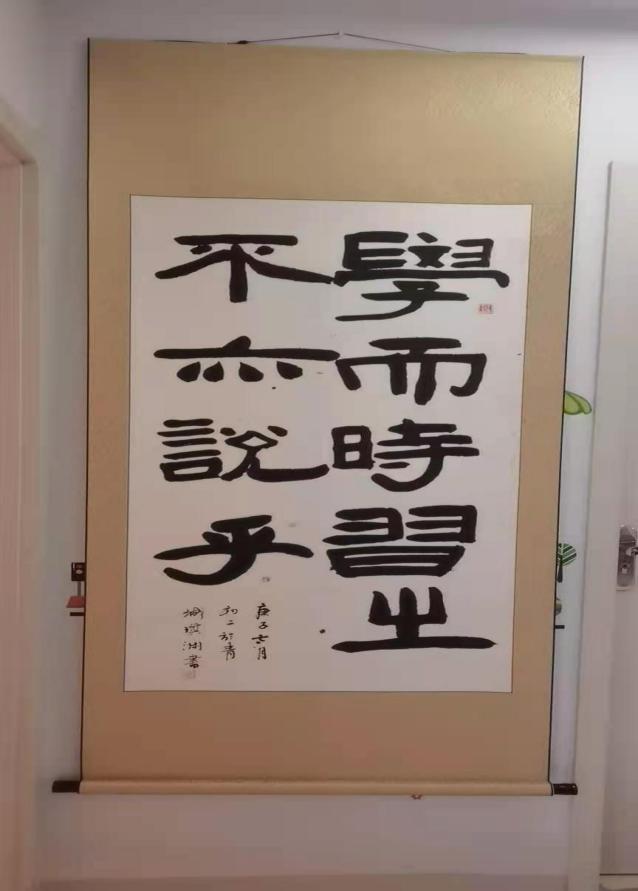 學而時習之
不亦說乎
庚子六月
初二於青
書